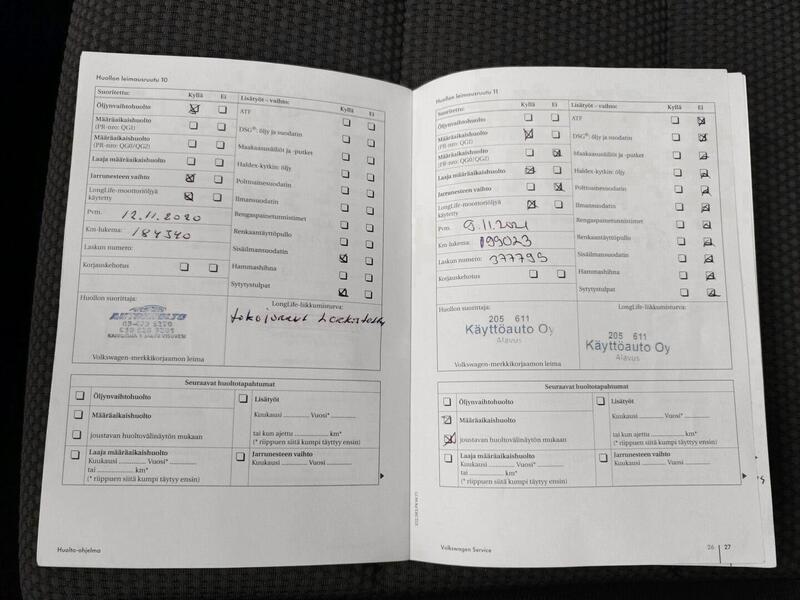 Huollon leimausruutu 10
Suoritettu: Kyllä Ei
Öljynvaihtohuolto
Määräaikaishuolto
(PR-nro: QGI)
Määräaikaishuolto
(PR-nro: QG0/QG2)
Laaja määräaikaishuolto
Jarrunesteen vaihto
LongLife-moottoriöljyä
käytetty
Pvm. 12.11.2020
Km-lukema: 184340
Laskun numero:
Korjauskehotus
Lisätyöt – vaihto: Kyllä Ei
ATF
DSG®: öljy ja suodatin
Maakaasusäiliöt ja -putket
Haldex-kytkin: öljy
Polttoainesuodatin
Ilmansuodatin
Rengaspainetunnistimet
Renkaantäyttöpullo
Sisäilmansuodatin
Hammashihna
Sytytystulpat
Huollon suorittaja:
LongLife-liikkumisturva:
Volkswagen-merkkikorjaamon leima
Seuraavat huoltotapahtumat
Öljynvaihtohuolto
Määräaikaishuolto
joustavan huoltovälinäytön mukaan
Laaja määräaikaishuolto
Kuukausi Vuosi*
tai km*
(* riippuen siitä kumpi täytyy ensin)
Lisätyöt
Kuukausi Vuosi*
tai kun ajettu km*
(* riippuen siitä kumpi täyttyy ensin)
Jarrunesteen vaihto
Kuukausi Vuosi
Huolto-ohjelma
Huollon leimausruutu 11
Suoritettu: Kyllä Ei
Öljynvaihtohuolto
Määräaikaishuolto
(PR-nro: QGI)
Määräaikaishuolto
(PR-nro: QG0/QG2)
Laaja määräaikaishuolto
Jarrunesteen vaihto
LongLife-moottoriöljyä
käytetty
Pvm. 9.11.2021
Km-lukema: 199023
Laskun numero: 377795
Korjauskehotus
Lisätyöt – vaihto: Kyllä Ei
ATF
DSG®: öljy ja suodatin
Maakaasusäiliöt ja -putket
Haldex-kytkin: öljy
Polttoainesuodatin
Ilmansuodatin
Rengaspainetunnistimet
Renkaantäyttöpullo
Sisäilmansuodatin
Hammashihna
Sytytystulpat
Huollon suorittaja:
205 611
Käyttöauto Oy
Alavus
Volkswagen-merkkikorjaamon leima
LongLife-liikkumisturva:
205 611
Käyttöauto Oy
Alavus
Seuraavat huoltotapahtumat
Öljynvaihtohuolto
Määräaikaishuolto
joustavan huoltovälinäytön mukaan
Laaja määräaikaishuolto
Kuukausi Vuosi*
tai km*
(* riippuen siitä kumpi täytyy ensin)
Lisätyöt
Kuukausi Vuosi*
tai kun ajettu km*
(* riippuen siitä kumpi täyttyy ensin)
Jarrunesteen vaihto
Kuukausi Vuosi
Volkswagen Service
26 27